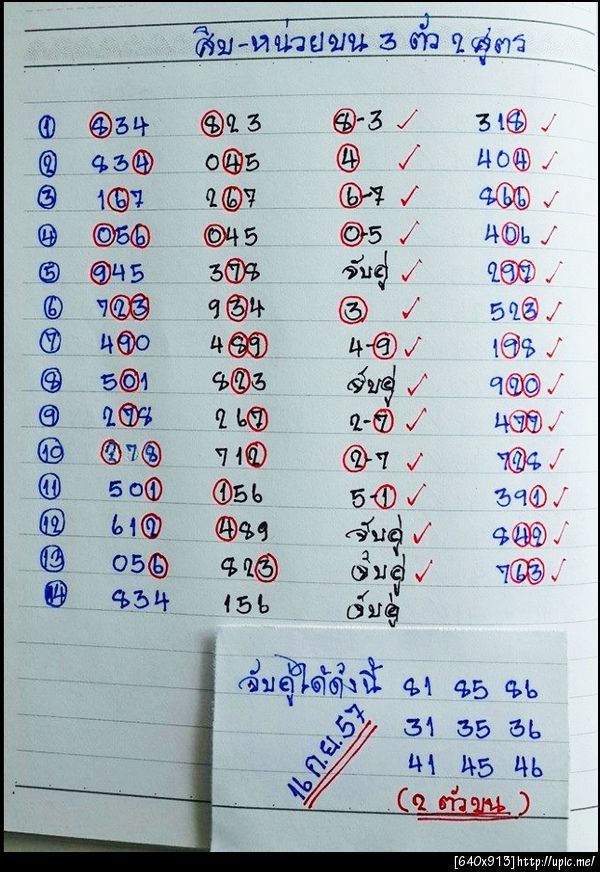 สิบ-หน่วยบน 3 ตัว 2 สูตร
① 834 823 8-3 ✓ 318 ✓
② 834 045 4 ✓ 404 ✓
③ 167 267 6-7 ✓ 866 ✓
④ 056 045 0-5 ✓ 406 ✓
⑤ 945 378 จับคู่ ✓ 297 ✓
⑥ 723 934 3 ✓ 523 ✓
⑦ 490 489 4-9 ✓ 198 ✓
⑧ 501 823 จับคู่ ✓ 920 ✓
⑨ 278 267 2-7 ✓ 477 ✓
⑩ 278 712 2-7 ✓ 728 ✓
⑪ 501 156 5-1 ✓ 391 ✓
⑫ 612 489 จับคู่ ✓ 842 ✓
⑬ 056 823 จับคู่ ✓ 763 ✓
⑭ 834 156 จับคู่
จับคู่ได้ดังนี้ 81 85 86
31 35 36
41 45 46
16 ก.ย. 57
(2 ตัวบน)
[640x913]http://upic.me/